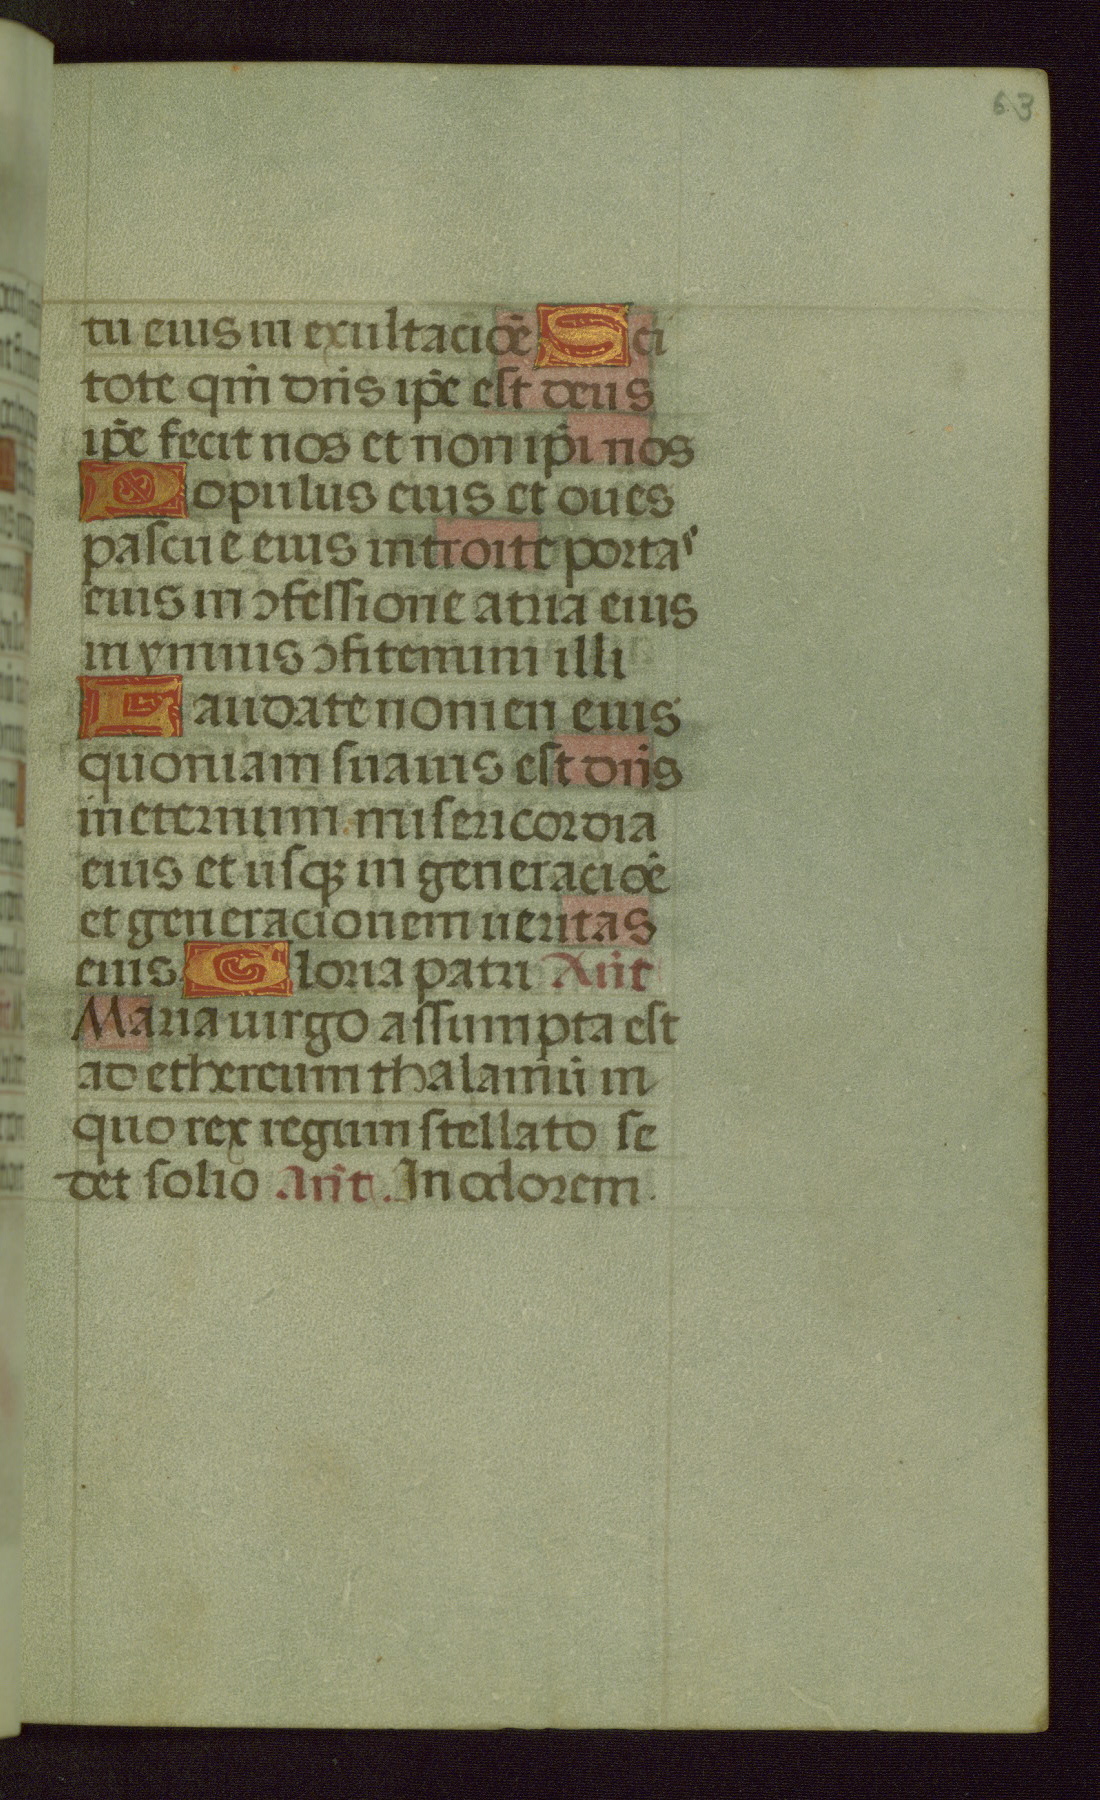 63
tu eius in exultacioē Sci
tote qm̄ dn̄s ip̄e est deus
ip̄e fecit nos et non ip̄i nos
Populus eius et oues
pascue eius introite portas
eius in ↄfessione atria eius
in ymnis ↄfitemini illi
Laudate nomen eius
quoniam suauis est dn̄s
in eternum misericordia
eius et usqꝫ in generacioē
et generacionem ueritas
eius Gloria patri Ant̄
Maria uirgo assumpta est
ad ethereum thalamū in
quo rex regum stellato se
det solio Ant̄. In odorem.